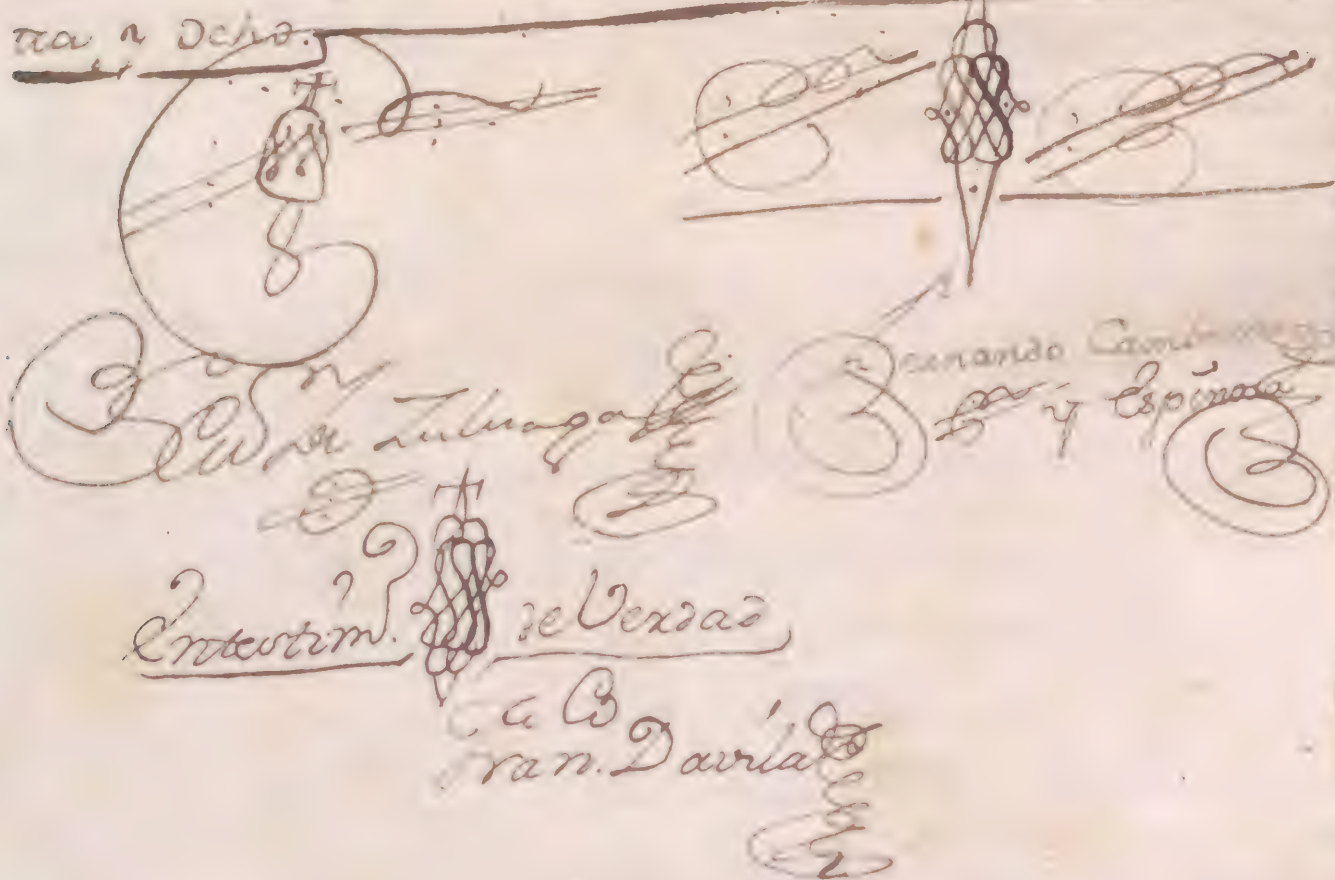 ta y ocho.
de Zuluaga
Fernando
y Espinosa
En testim.º de Verdad
Fran.co Davila